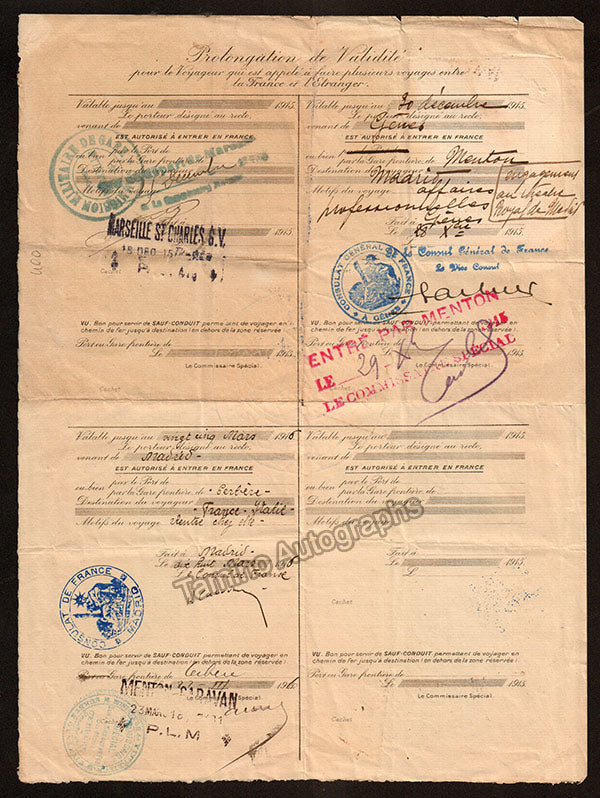 Prolongation de Validité
pour le Voyageur qui est appelé à faire plusieurs voyages entre
la France et l'Étranger.
Valable jusqu'au 1915
Le porteur désigné au recto,
venant de
EST AUTORISÉ A ENTRER EN FRANCE
ou bien par le Port de
par la Gare frontière de
Destination du voyageur
Motifs du voyage
Décembre
Fait à
MARSEILLE ST CHARLES G.V.
15 DEC 15
P.L.M
Cachet
VU. Bon pour servir de SAUF-CONDUIT permettant de voyager en
chemin de fer jusqu'à destination (en dehors de la zone réservée)
Port ou Gare frontière de
Le 1915
Le Commissaire Spécial,
Cachet
Valable jusqu'au 30 décembre 1915
Le porteur désigné au recto,
venant de Gênes
EST AUTORISÉ A ENTRER EN FRANCE
ou bien par le Port de
par la Gare frontière de Menton
Destination du voyageur Madrid
Motifs du voyage affaires
professionnelles
engagement
au
Royal de Madrid
Fait à Gênes
Le 28 Xbre
Le Consul Général de France
Le Vice Consul
CONSULAT GÉNÉRAL DE FRANCE
A GÊNES
VU. Bon pour servir de SAUF-CONDUIT permettant de voyager en
chemin de fer jusqu'à destination (en dehors de la zone réservée)
ENTRÉ PAR MENTON
LE 29 1915
LE COMMISSAIRE SPÉCIAL
Cachet
Valable jusqu'au vingt cinq Mars 1916
Le porteur désigné au recto,
venant de Madrid
EST AUTORISÉ A ENTRER EN FRANCE
ou bien par le Port de
par la Gare frontière de Cerbère
Destination du voyageur France - Italie
Motifs du voyage rentre chez elle
Fait à Madrid
Le dix huit Mars 1916
Le Consul de France
CONSULAT DE FRANCE A MADRID
VU. Bon pour servir de SAUF-CONDUIT permettant de voyager en
chemin de fer jusqu'à destination (en dehors de la zone réservée)
Port ou Gare frontière de Cerbère
MENTON GARAVAN
23 MARS 16
P.L.M
Valable jusqu'au 1915
Le porteur désigné au recto,
venant de
EST AUTORISÉ A ENTRER EN FRANCE
ou bien par le Port de
par la Gare frontière de
Destination du voyageur
Motifs du voyage
Fait à
L 1915
Cachet
VU. Bon pour servir de SAUF-CONDUIT permettant de voyager en
chemin de fer jusqu'à destination (en dehors de la zone réservée)
Port ou Gare frontière de
Le 1915
Le Commissaire Spécial,
Cachet
Tamino Autographs